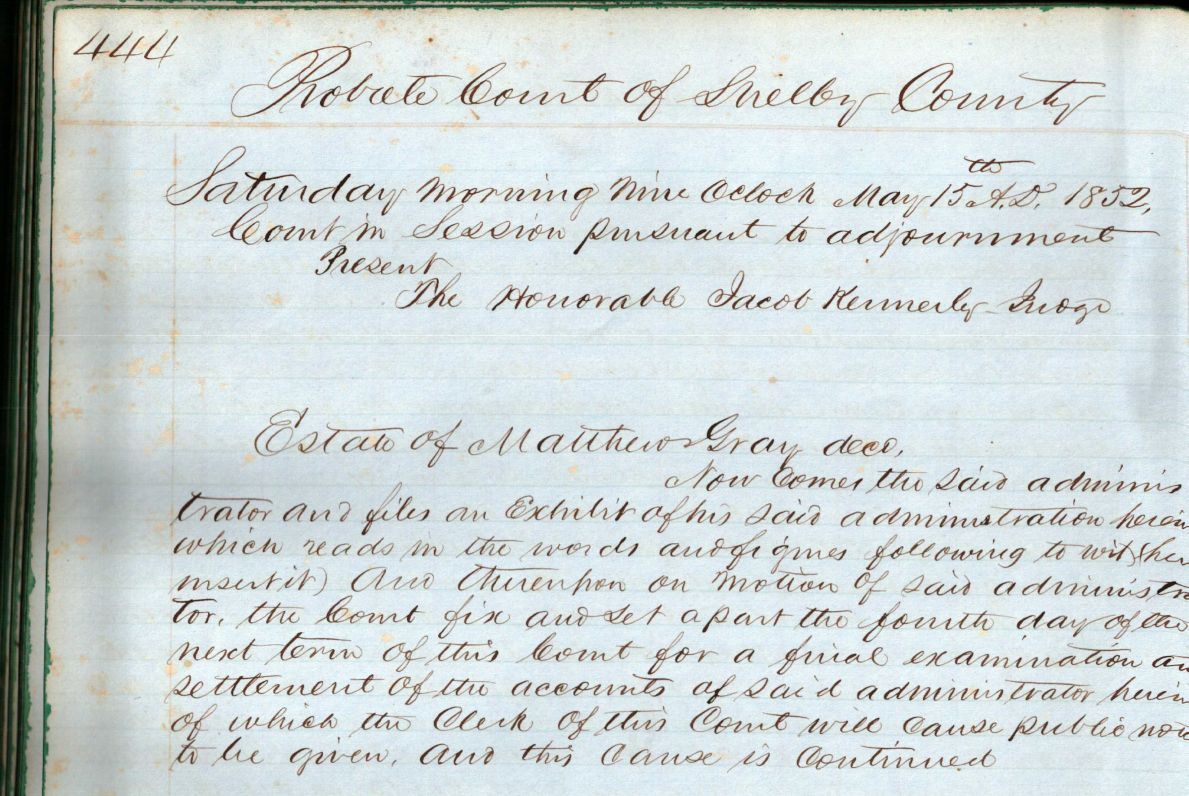 444
Probate Court of Shelby County
Saturday Morning Nine Oclock May 15th A.D. 1852,
Court in Session pursuant to adjournment
Present
The Honorable Jacob Kennerly Judge
Estate of Matthew Gray decd,
Now Comes the said adminis
trator and files an Exhibit of his said administration herein
which reads in the words and figures following to wit (her
insert it) And thereupon on Motion of said administra
tor, the Court fix and set apart the fourth day of the
next term of this Court for a final examination an
settlement of the accounts of said administrator herein
of which the Clerk of this Court will cause public noti
to be given, and this Cause is Continued